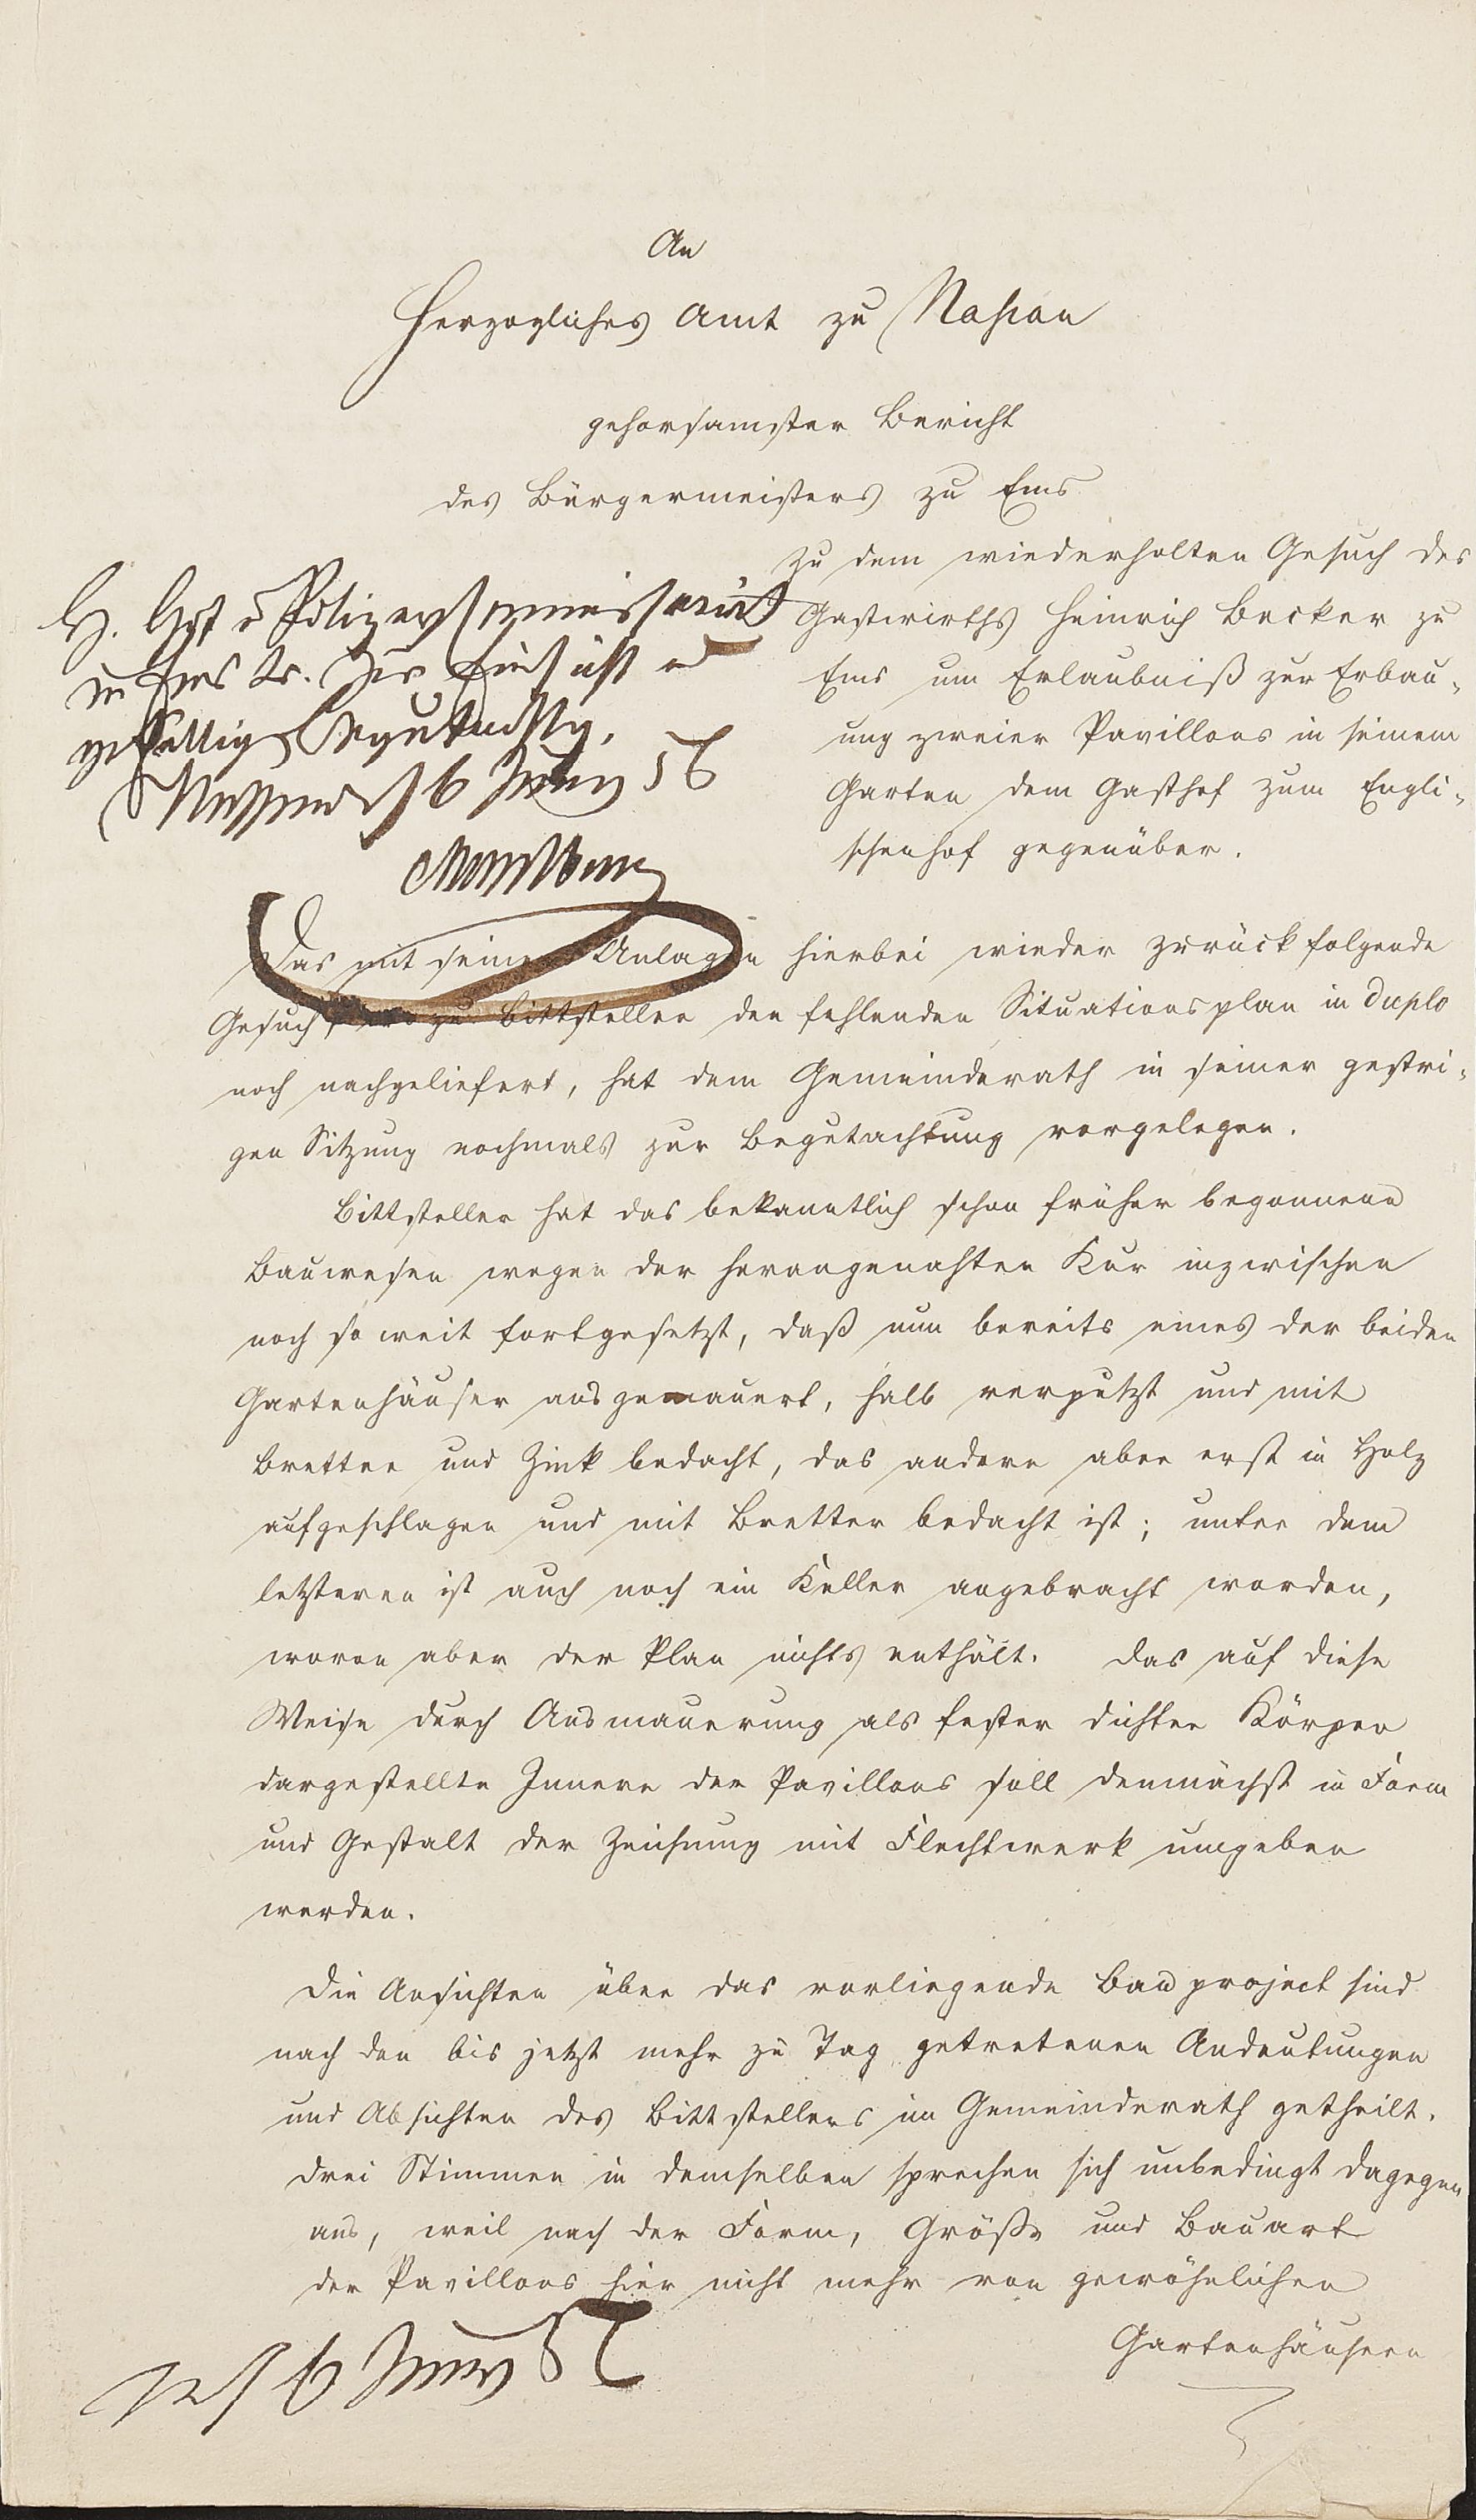 An
Herzogliches Amt zu Nassau
gehorsamster Bericht
des Bürgermeisters zu Ems
zu dem wiederholten Gesuch des
Gastwirths Heinrich Becker zu
Ems um Erlaubniß zur Erbau-
ung zweier Pavillons in seinem
Garten dem Gasthof zum Engli-
schenhof gegenüber.
H. Polizeycommissariat
in Ems zur Einsicht u
gefälligen Begutachtg.
Nassau 6 Juny 56
Das mit seinen Anlagen hierbei wieder zurückfolgende
Gesuch zu Bittsteller den fehlenden Situationsplan in duplo
noch nachgeliefert, hat dem Gemeinderath in seiner gestri-
gen Sitzung nochmals zur Begutachtung vorgelegen.
Bittsteller hat das bekanntlich schon früher begonnene
Bauwesen wegen der herangenahten Kur inzwischen
noch so weit fortgesetzt, daß nun bereits eines der beiden
Gartenhäuser ausgemauert, halb verputzt und mit
Bretter und Zink bedacht, das andere aber erst in Holz
aufgeschlagen und mit Bretter bedacht ist; unter dem
letzteren ist auch noch ein Keller angebracht worden,
wovon aber der Plan nichts enthält. Das auf diese
Weise durch Ausmauerung als fester dichter Körper
dargestellte Innere der Pavillons soll demnächst in Form
und Gestalt der Zeichnung mit Flechtwerk umgeben
werden.
Die Ansichten über das vorliegende Bauproject sind
nach den bis jetzt mehr zu Tag getretenen Andeutungen
und Absichten des Bittstellers im Gemeinderath getheilt.
Drei Stimmen in demselben sprechen sich unbedingt dagegen
aus, weil nach der Form, Größe und Bauart
der Pavillons hier nicht mehr von gewöhnlichen
Gartenhäusern
6 Juny